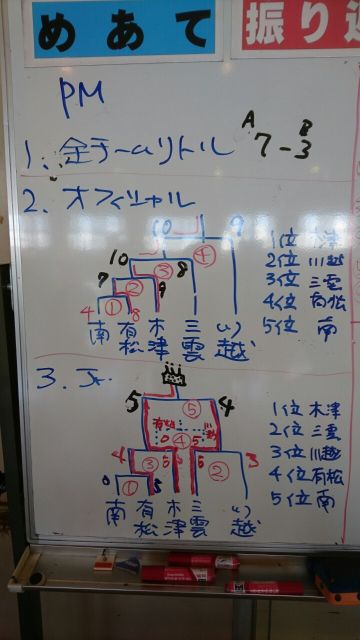 めあて
振り返
PM
1、全チームリトル
A B
7-3
2、オフィシャル
10 9
④
10 8
③
7 9
②
4 8
①
南 有松 木津 三雲 川越
1位 木津
2位 川越
3位 三雲
4位 有松
5位 南
3、Jr.
5 4
⑤
有松 川越
0 5
④
4 5 5 3
③ ②
0 5
①
南 有松 木津 三雲 川越
1位 木津
2位 三雲
3位 川越
4位 有松
5位 南